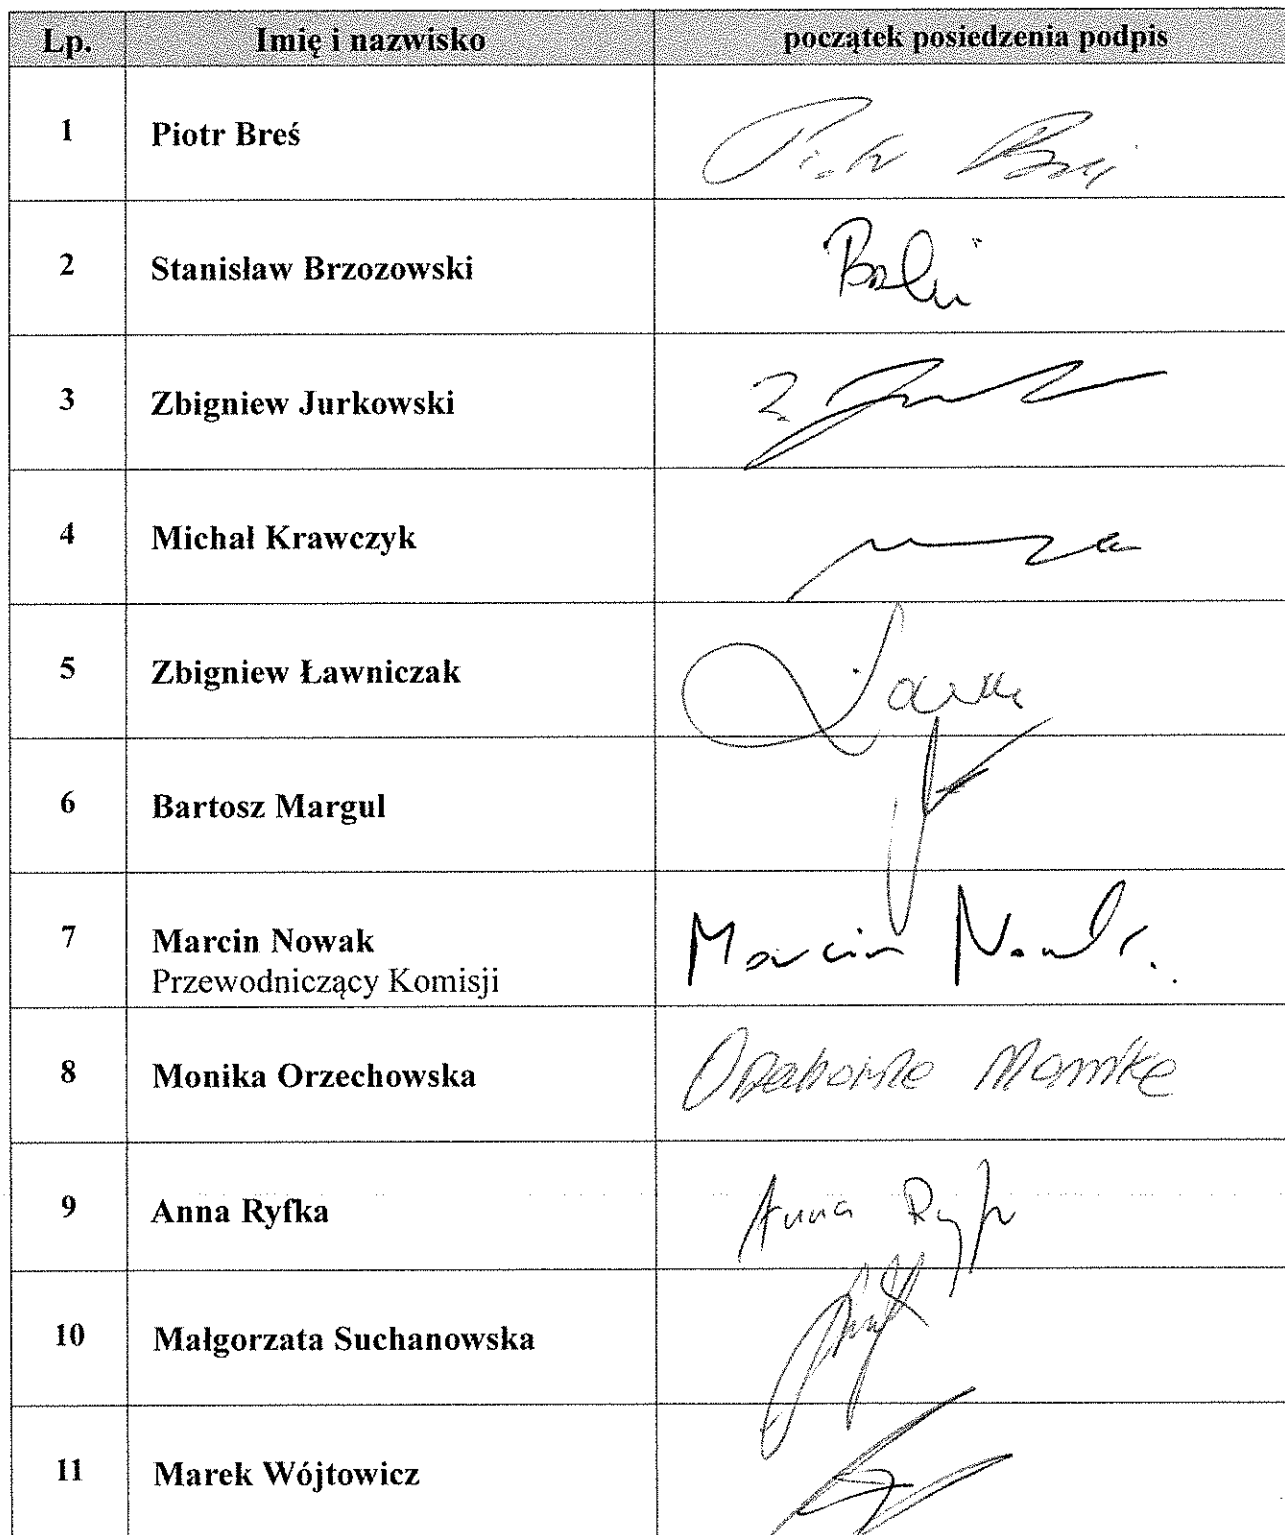 Lp. Imię i nazwisko początek posiedzenia podpis
1 Piotr Breś Piotr Breś
2 Stanisław Brzozowski
3 Zbigniew Jurkowski
4 Michał Krawczyk
5 Zbigniew Ławniczak
6 Bartosz Margul
7 Marcin Nowak Marcin Nowak
Przewodniczący Komisji
8 Monika Orzechowska
9 Anna Ryfka Anna
10 Małgorzata Suchanowska
11 Marek Wójtowicz